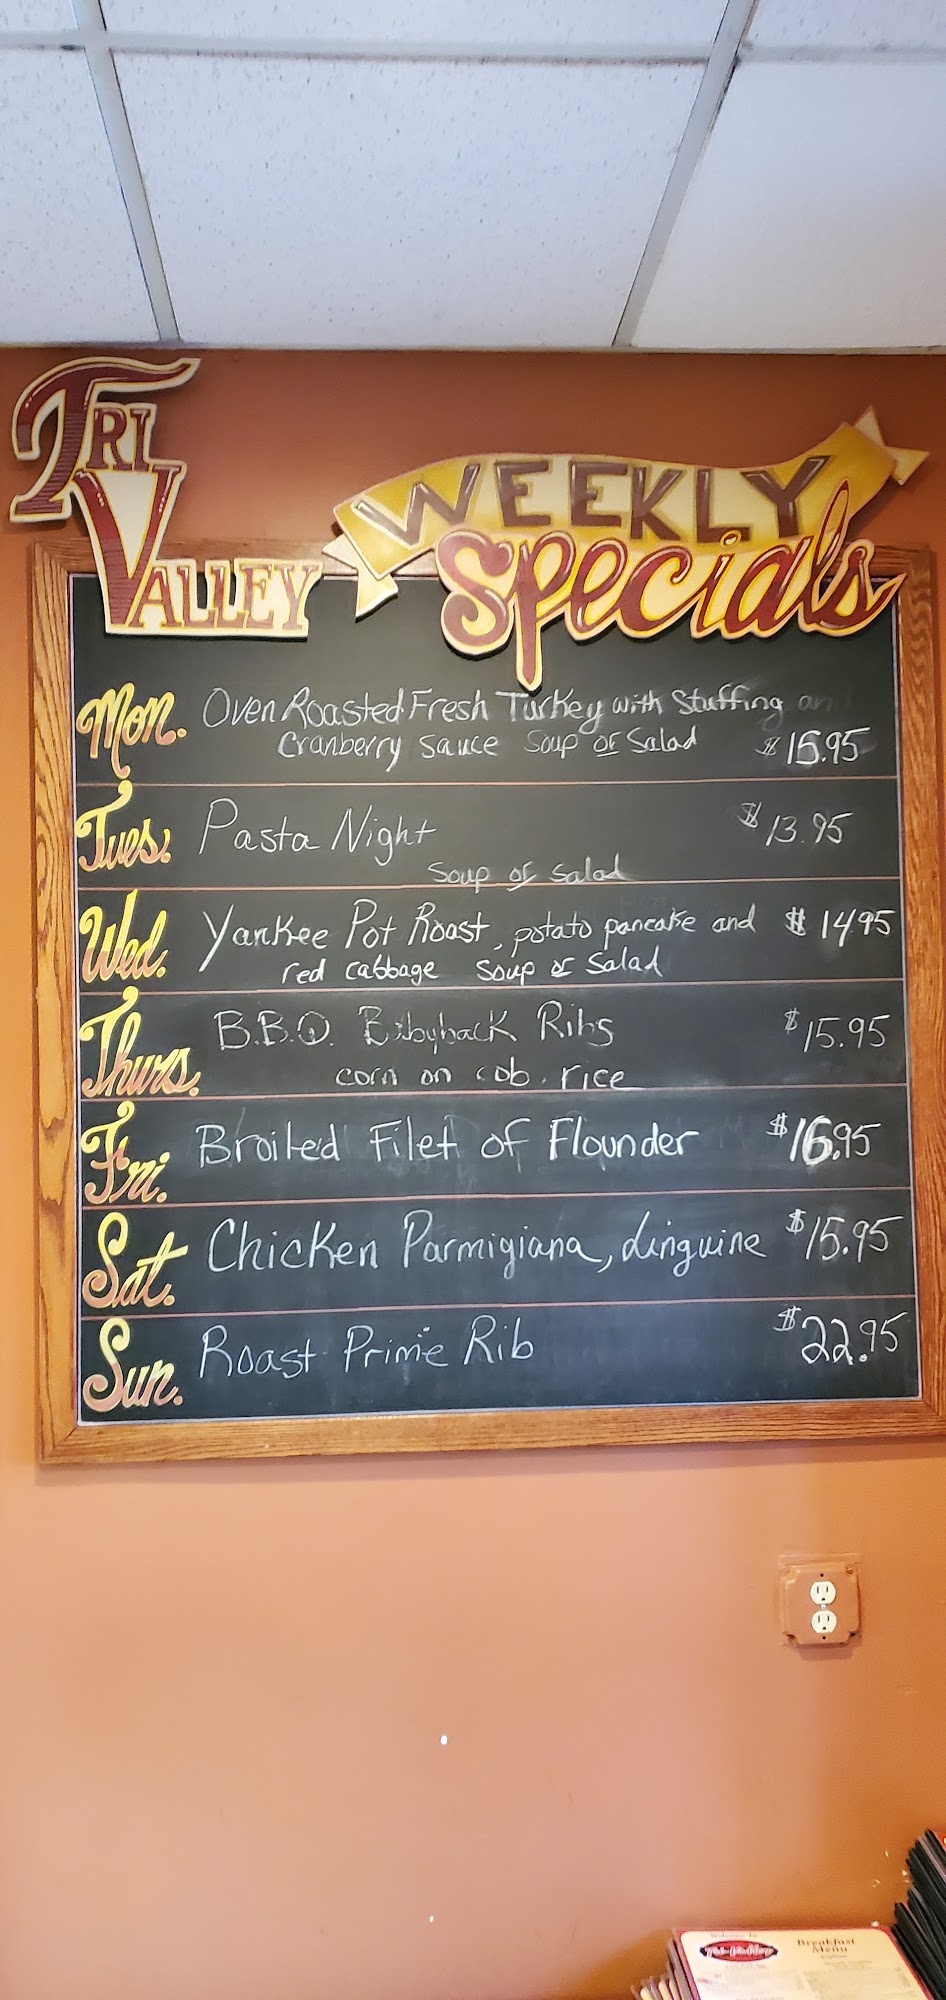 TRI
VALLEY
WEEKLY
Specials
Mon. Oven Roasted Fresh Turkey with Stuffing an
Cranberry sauce Soup or Salad $15.95
Tues. Pasta Night $13.95
Soup or Salad
Wed. Yankee Pot Roast, potato pancake and $14.95
red cabbage Soup or Salad
Thurs. B.B.Q. Babyback Ribs $15.95
corn on cob. rice
Fri. Broiled Filet of Flounder $16.95
Sat. Chicken Parmigiana, linguine $15.95
Sun. Roast Prime Rib $22.95
Welcome To
Tri-Valley
Breakfast
Menu